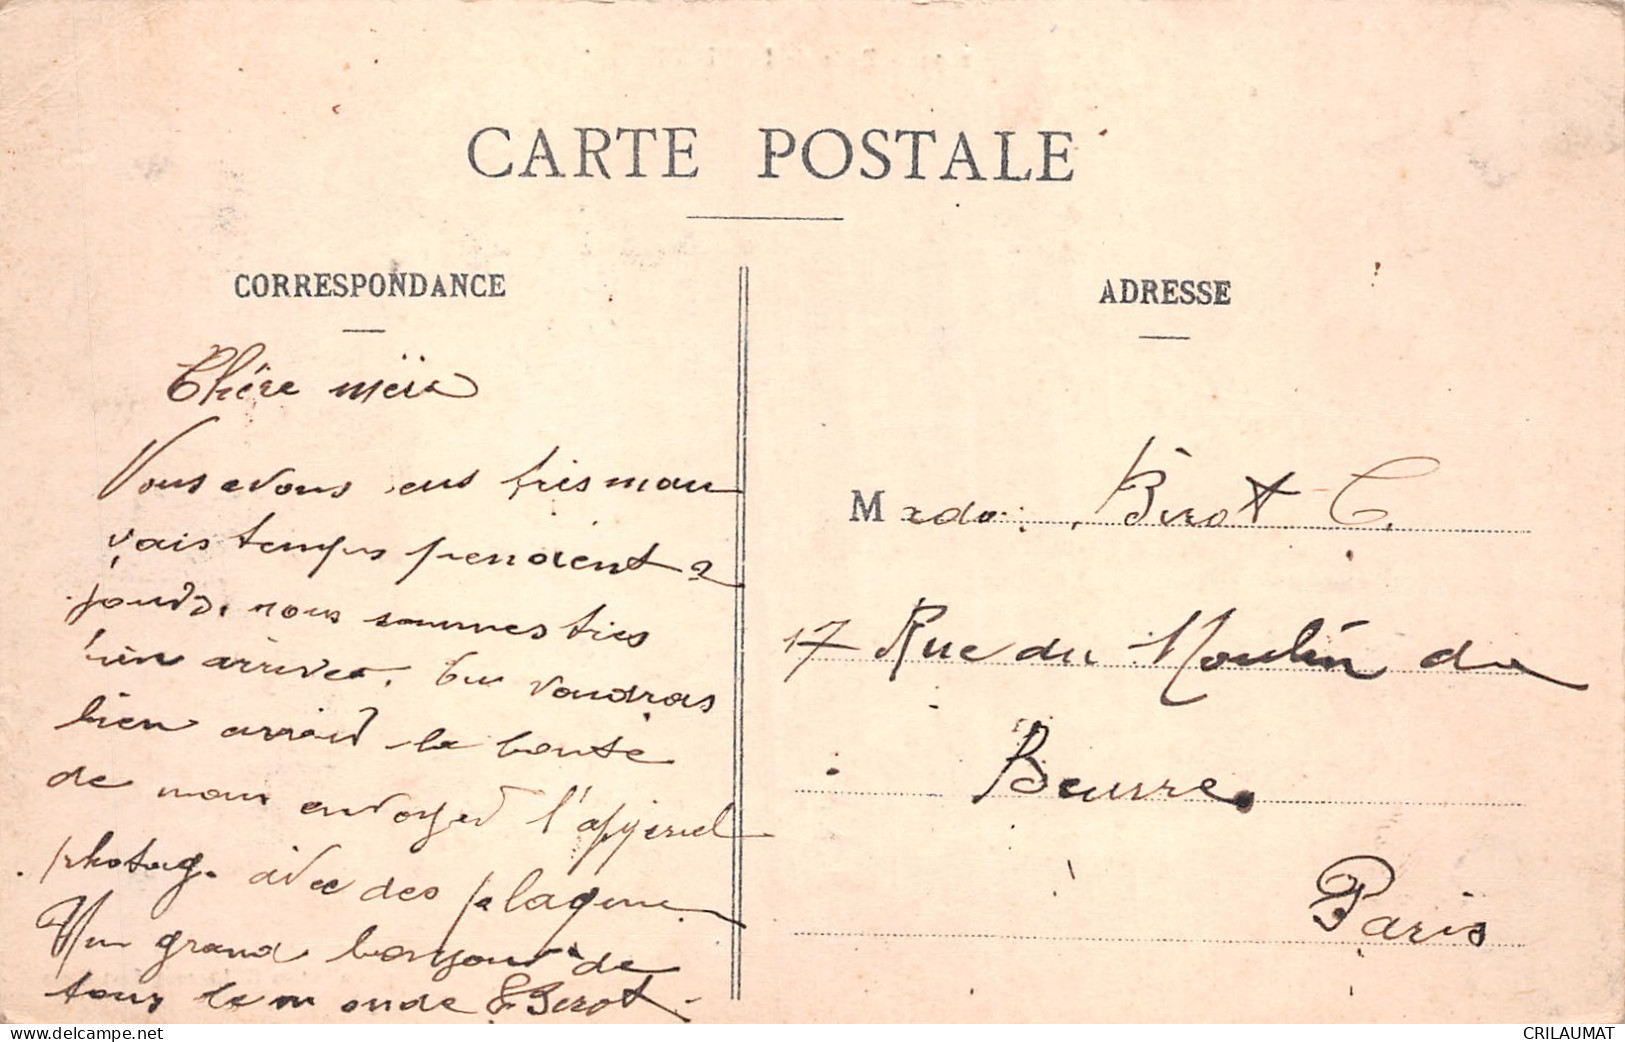 CARTE POSTALE
CORRESPONDANCE
ADRESSE
Chère
Vous avons eus tris mau
vais temps pendent 2
jours. nous sommes tries
bien arrives. tu voudras
bien la bonté
de nous envoyer l'appereil
photog. avec des plaques
Un grand bonjour de
tous le monde Birot
M Birot C.
17 Rue du Moulin de
Beurre.
Paris
CRILAUMAT